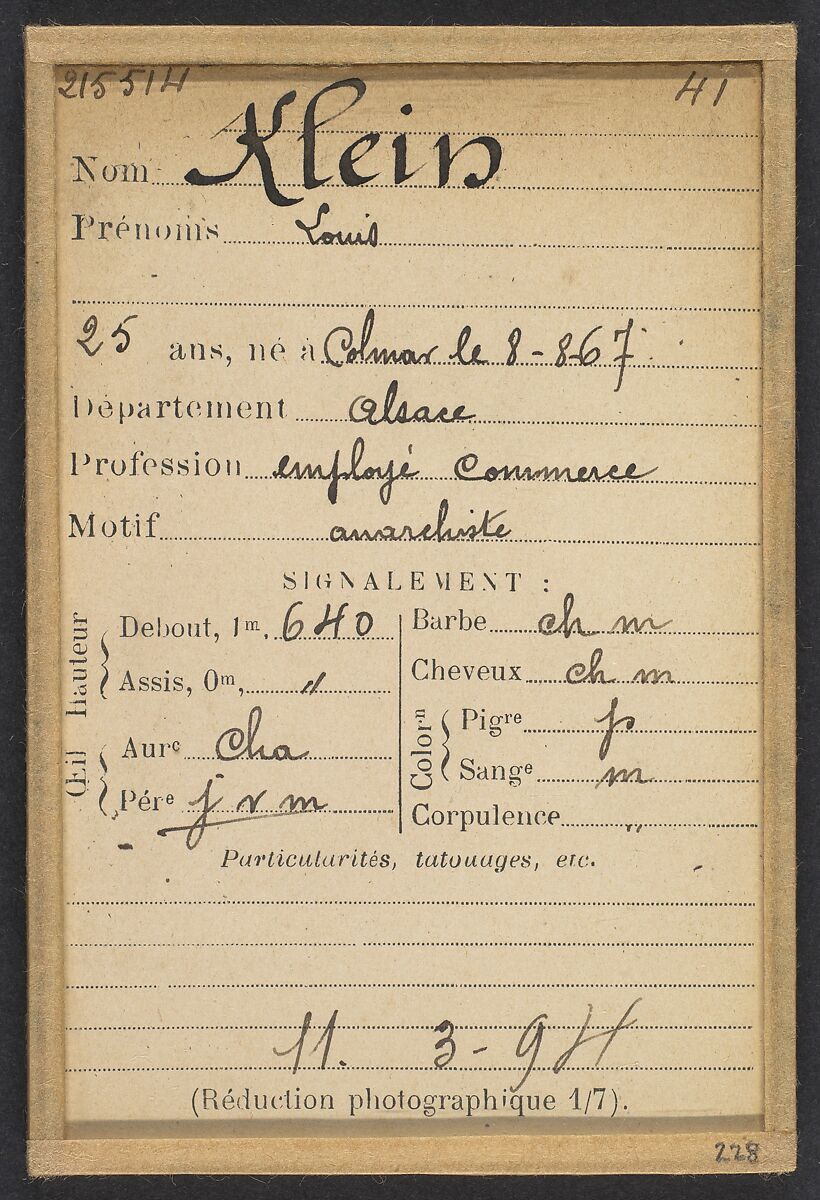 215514 41
Nom Klein
Prénoms Louis
25 ans, né à Colmar le 8-8-67
Département Alsace
Profession employé Commerce
Motif anarchiste
SIGNALEMENT :
hauteur
Debout, 1m, 640
Assis, 0m, "
Œil
Aurᶜ Cha
Pérᵉ j v m
Barbe ch m
Cheveux ch m
Colorⁿ
Pigʳᵉ p
Sangᵉ m
Corpulence "
Particularités, tatouages, etc.
11. 3-94
(Réduction photographique 1/7).
228